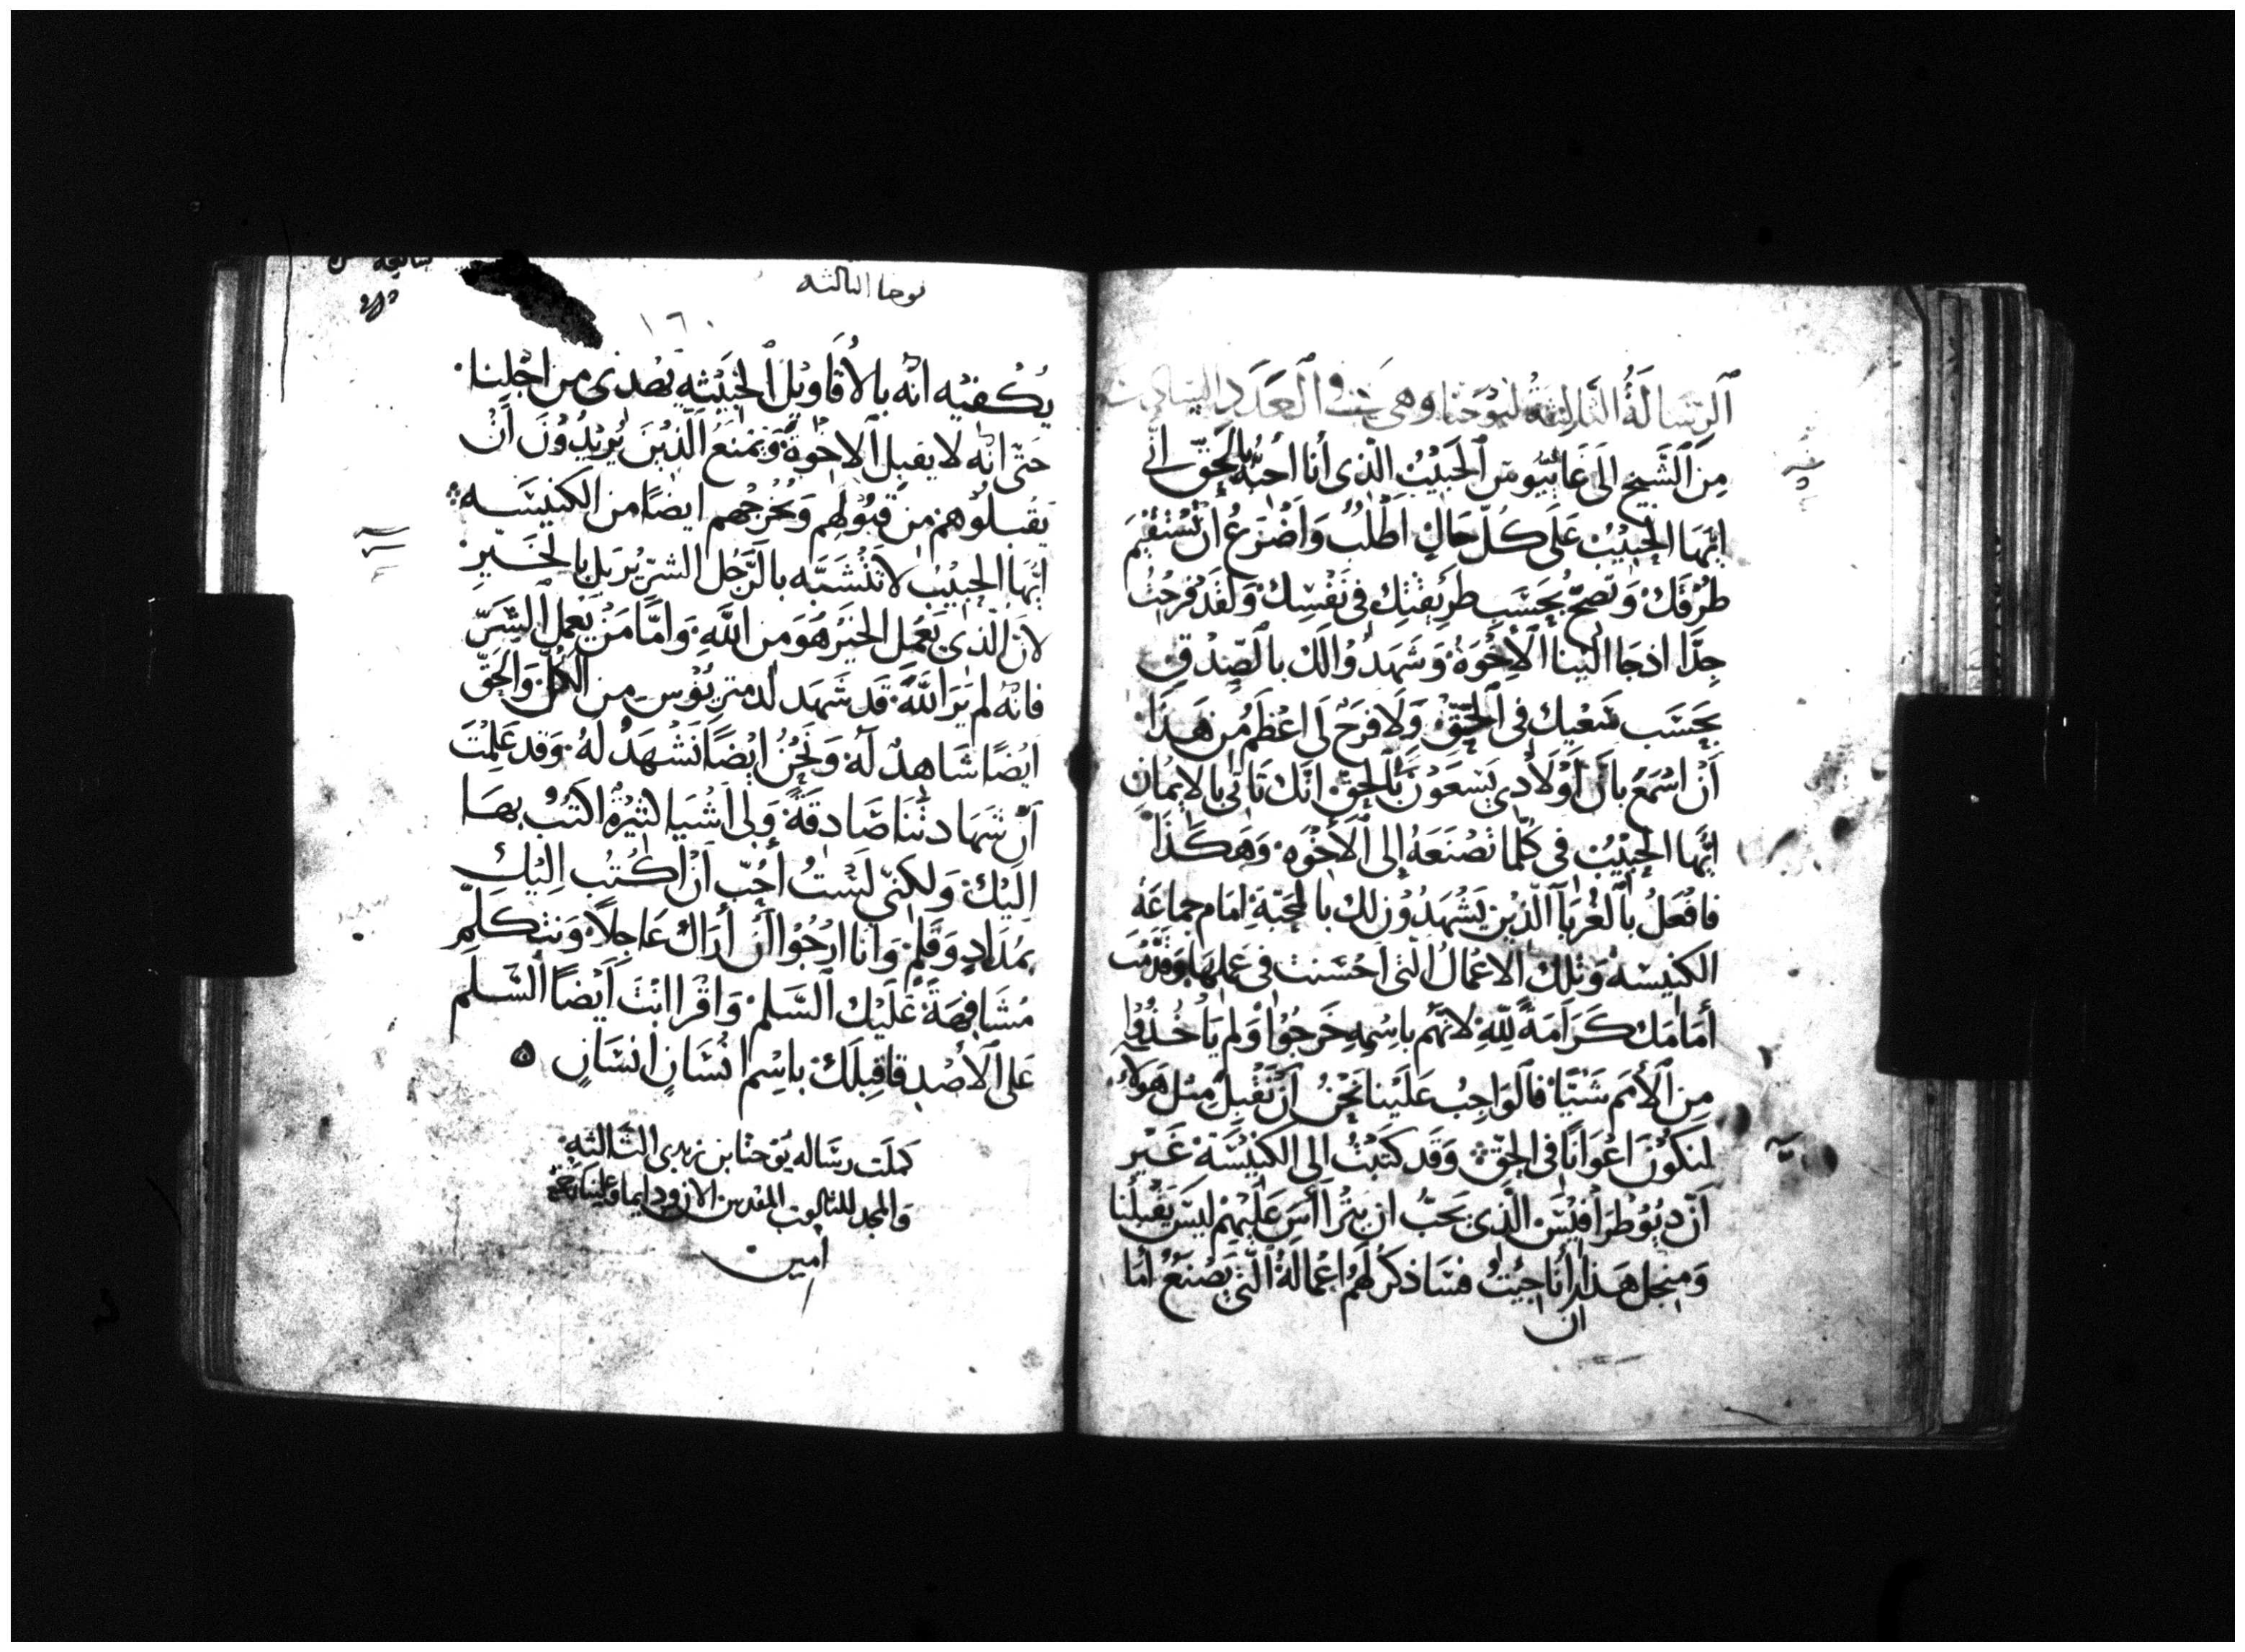 الرسالة الثالثة ليوحنا وهي في العدد السادسة
مِنَ الشَّيخِ الى غَايُّوس الحَبيْب الذى أنا أحبّهُ بالحَقّ انى
ايّها الحَبِيْبُ عَلَى كُلّ حَالٍ اَطْلبُ وَاَضْرَعُ اَنْ تَسْتَقيْمَ
طرُقكَ وَتَصحُّ بحَسَبِ طرِيْقتِكِ في نَفْسِك وَلقَد فرحْتُ
جدَّا اذ جَا الَيْنا الْاِخْوَة وَشَهدُوا لكَ بالصّدْقِ
بحَسَب سَعْيك فى الحَقّ وَلَا فرَحُ لى اعْظمُ مِن هَذا
أنْ اسْمَعُ بانَ أوْلَادي يَسْعَوْنَ بالحِقّ انّك تَاتى بالايمَانِ
ايُّها الحَبِيْبُ فى كُلّما تصْنَعَهُ إلى الأخْوَه وَهَكَذَا
فافْعَلُ بالغُربَآ الّذيْن يَشْهَدُوْن لك بالمحَبّةِ امَام جماعَة
الكنيسَة وَتلكَ الاعْمَالُ الّتى احْسَنت فى عَملهَا وَقدّمْتَ
أمَامَك كَرَامَةً لِلّهِ لانّهُمْ باسْمِهِ خَرجُوا وَلم يَاخُذوا
مِنَ الأمَم شيْئًا فالوَاجِبُ عَلَيْنا نَحْنُ اَنْ نَقْبلَ مِثل هَولا
لنكُوْنَ اعْوَانًا فى الحقّ وَقَد كتَبْتُ الى الكنيْسَة غَيْر
اَنّ ديُوْطرَافيْسَ الَّذي يحَبُّ ان يترَاأسَ عَلَيْهمْ ليسَ يَقْبلُنا
وَمِنجل هَذا ان أنا جيْتُ فسَاذكرُ لَهُم اعْمَالهُ الّتى يَصْنعُ امَا
يوحنا الثالثه
١٦٠
يَكْفيْه انّه بالأقاويْل الخبيْثِه يَهْدى من اجْلِنا
حَتّى انّه لا يقبل الاخوَة وَيَمْنعُ الّذيْنَ يُرِيْدُوْنَ أنْ
يَقْبلُوْهمْ مِن قبُوْلهم وَيُخْرِجُهم ايضًا من الكنيْسَه
ايّها الحبيْبُ لا تَتشَبّه بالرَّجُل الشريْر بَل بالخَيْرِ
لانّ الّذى يَعْمل الخَيْر هُوَ مِن اللَّهِ وَامَّا مَنْ يَعْمل الشَرّ
فانّه لم يَرَ اللَّهَ قَد شَهدَ لدمتريُوْس مِن الكلّ وَالحَقّ
ايْضًا شَاهدُ لهُ وَنَحْنُ ايْضًا نَشْهَدُ لَهُ وَقد عَلِمْتَ
اَنّ شَهَادتنَا صَادقَةً وَلى اشْيَا كثيْرَة اكتبُ بهَا
اِليْكَ وَلكِنّى لَسْتُ أحِبّ اَنْ اكْتُب اِليْكَ
بمدَادٍ وَقلمْ وَانا ارْجُوا اَنْ أرَاكَ عَاجِلاً وَنتكَلّم
مُشَافهَةً عَلَيْك السَّلم وَاقْرا انْتَ اَيْضًا السَّلم
عَلى الْاصْدِقا قِبلَك باسْم انْسَانٍ انسَانٍ ٥
كملَت رسَاله يوْحنّا بن زبدى الثالثه
والمجد للثالوث المقدس الان ودايما وعلينا رحمته
امين